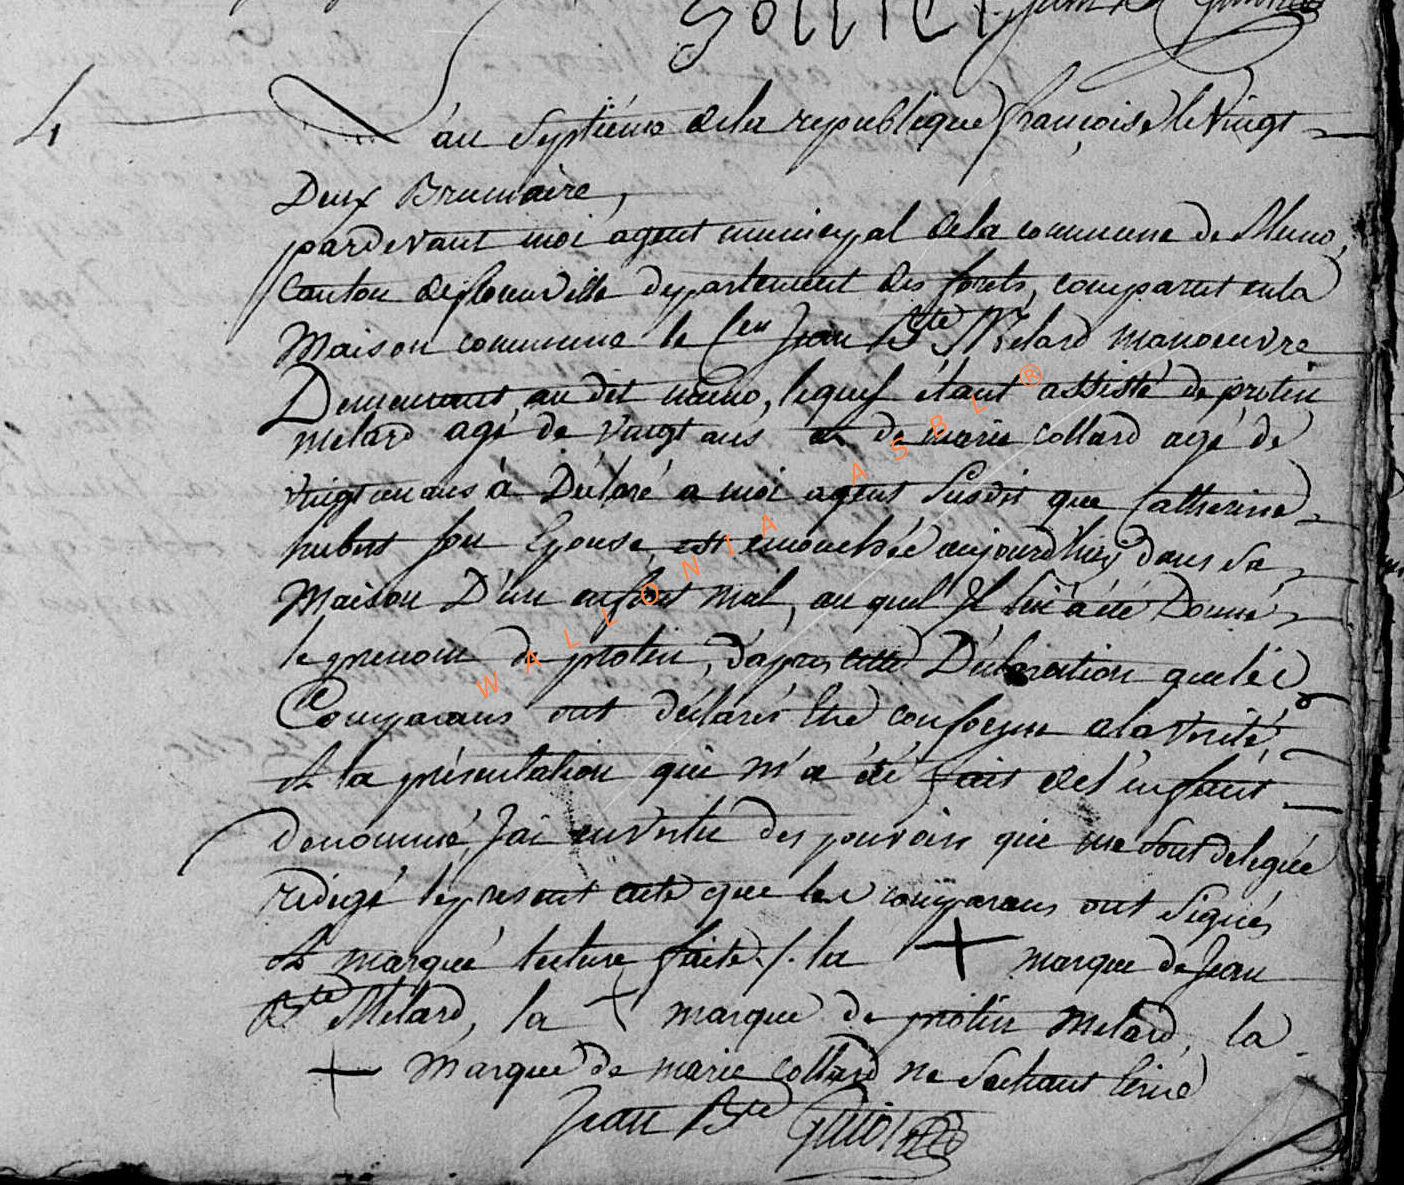 4
L'an Septiéme dela republique françoise le Vingt
Deux Brumaire,
pardevant moi agent municipal dela commune de Muno,
Canton de florenville departement des forets, comparut en la
Maison commune le Cen Jean Bte Melard manoeuvre
Demeurant au dit muno, lequel étant assisté de protin
melard agé de vingt ans et de marie collard agé de
vingt un ans à Déclaré a moi agent Susdit que Catherine
hubert son Epouse, est accouchée aujourd'huy dans sa
Maison D'un enfant mal, au quel Il lui a été Donné
le prenom de protin, d'apres cette Déclaration que les
Comparans ont déclarés Etre conforme a la verité,
et la présentation qui m'a été fait de l'enfant
denommé, J'ai en vertu des pouvoirs qui me sont delegués
redigé le present acte que les comparans ont Signés
et marqué lecture faite ./. la + marque de Jean
Bte Melard, la + marque de protin melard, la
+ marque de marie collard ne sachant Ecrire
Jean Bte
WALLONIA ASBL ®